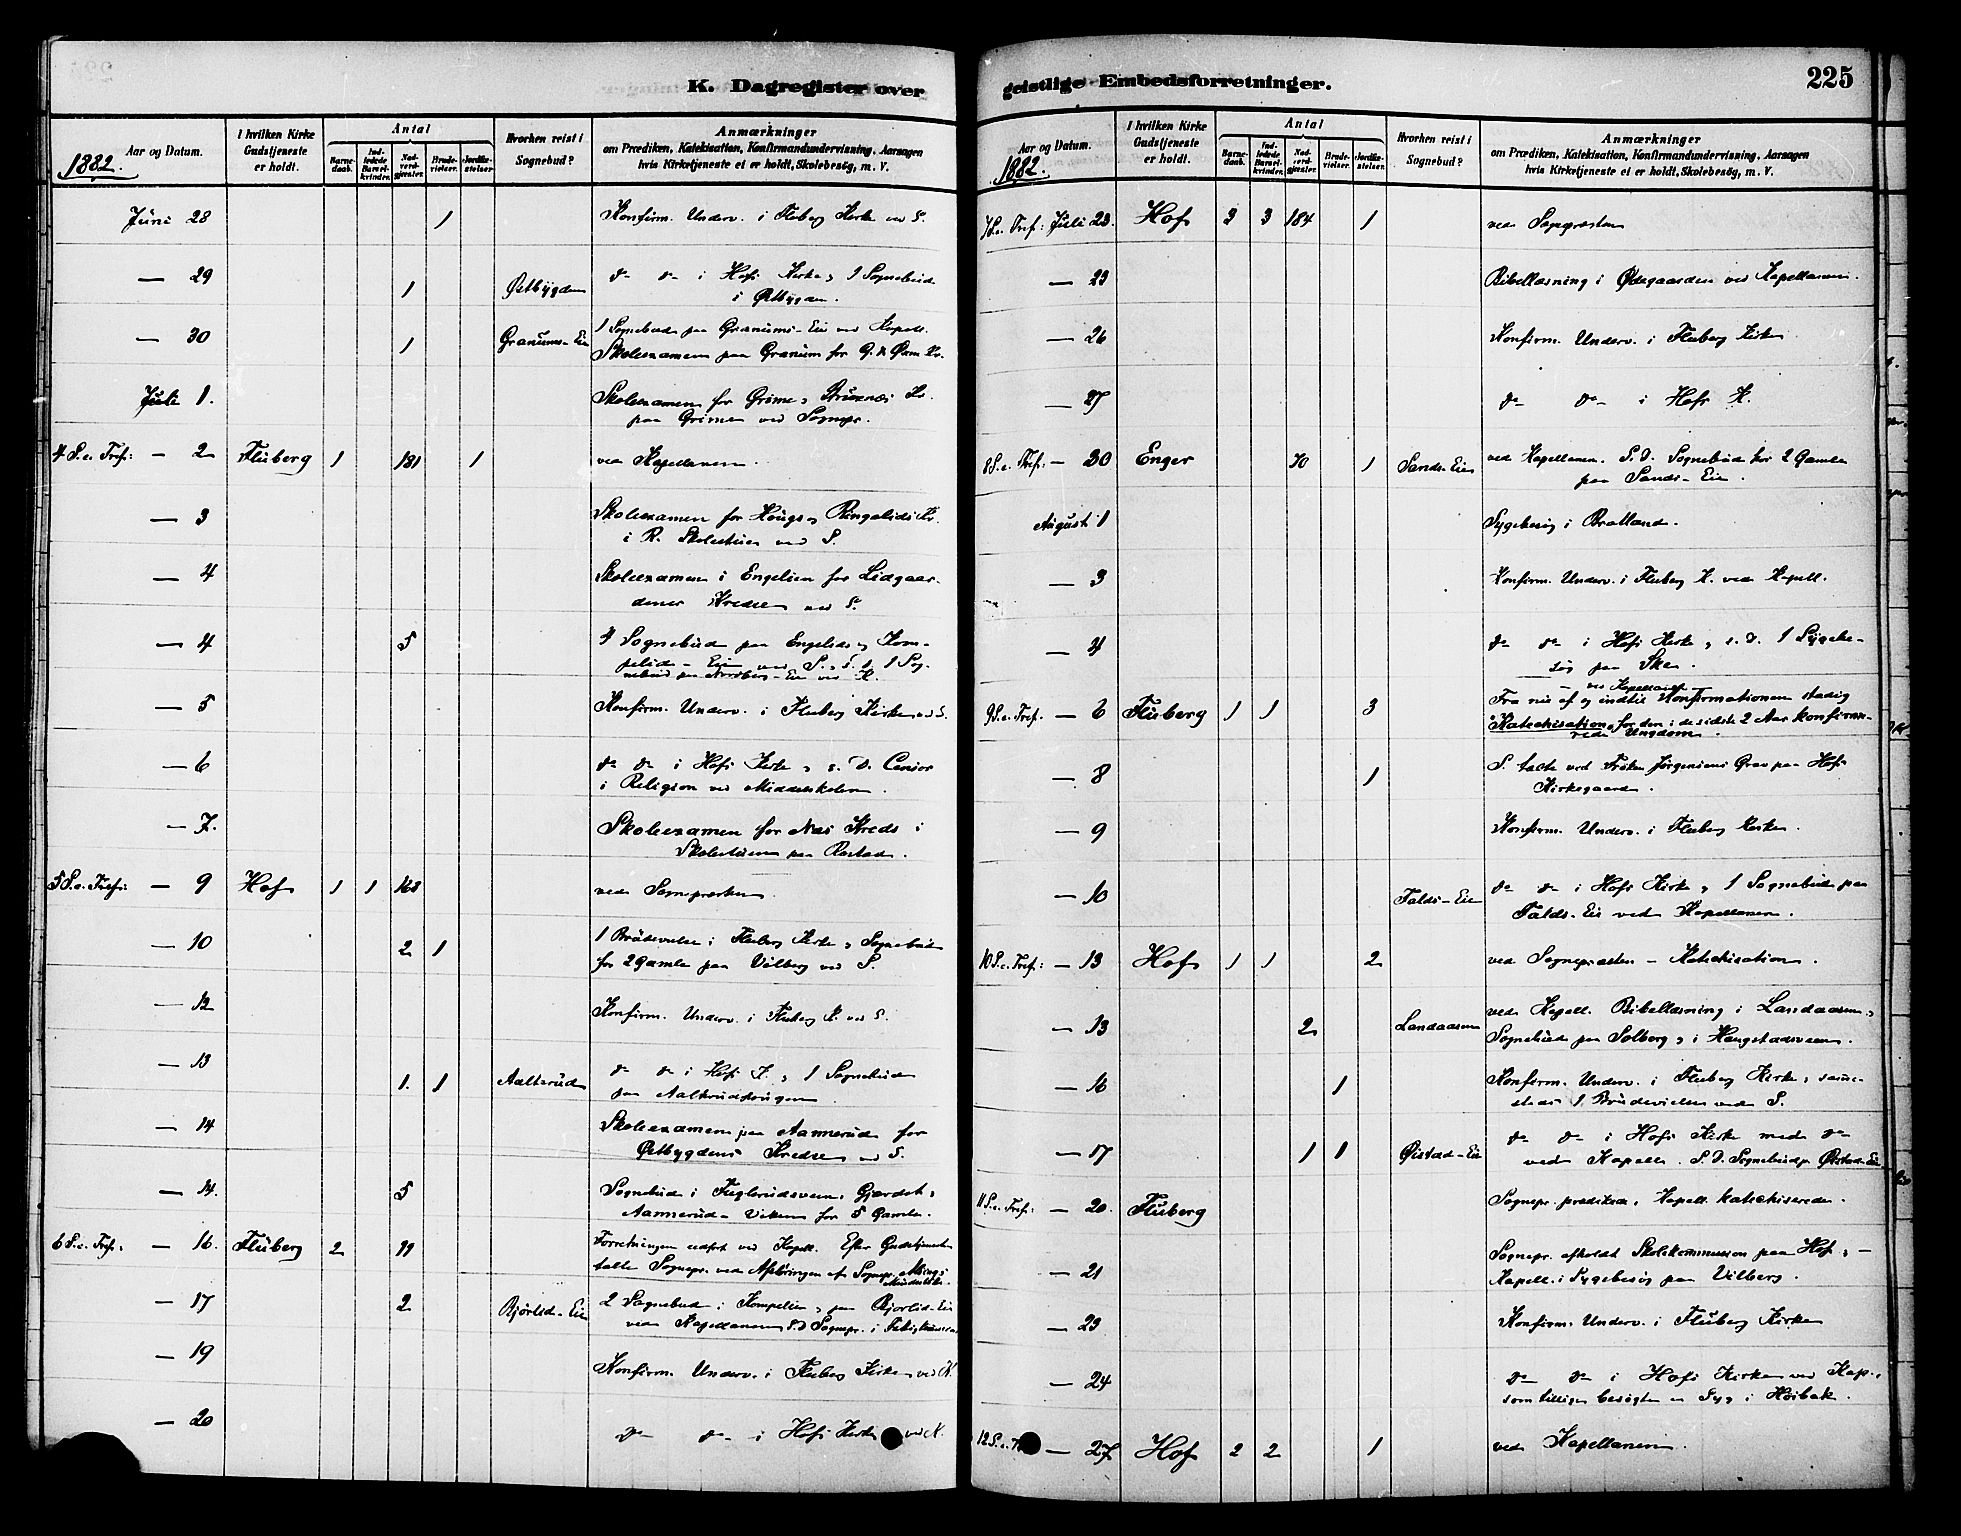 K. Dagregister over
Aar og Datum.
1882.
I hvilken Kirke Gudstjeneste er holdt.
Antal
Barnedaab.
Indledede Barselkvinder.
Nadverdgjester.
Brudevielser.
Jordfæstelser.
Hvorhen reist i Sognebud?
Anmærkninger
om Prædiken, Katekisation, Konfirmandundervisning, Aarsagen
hvis Kirketjeneste ei er holdt, Skolebesög, m. V.
Juni 28 1 Konfirm. Underv. i Fluberg Kirke ved S.
— 29 1 Østbygden do do i Hofs Kirke, 1 Sognebud
i Østbygden.
— 30 1 Granums-Eie 1 Sognebud paa Granums-Eie ved Kapell.
Skoleexamen paa Granum for G.
Juli 1. Skoleexamen for Grime
paa Grimen ved Sognepr.
4 S. e. Tref: — 2 Fluberg 1 181 1 ved Kapellanen.
— 3 Skoleexamen for Hougs og Ringelids Kr.
i R. Skolestuen ved S.
— 4 Skoleexamen i Engelien for Lidgaar-
denes Kredse ved S.
— 4 5 4 Sognebud paa Engelids og Kom-
pelid-Eie ved S., s. d. 1 Sog-
nebud paa Nordberg-Eie ved K.
— 5 Konfirm. Underv. i Fluberg Kirke ved S.
— 6 do do i Hofs Kirke, s. D. Censor
i Religion ved Middelskolen.
— 7. Skoleexamen for Næs Kreds i
Skolestuen paa Rostad.
5 S. e. Tref: — 9 Hof 1 1 168 ved Sognepræsten.
— 10 2 1 1 Brudevielse i Fluberg Kirke, Sognebud
for 2 Gamle paa Vilberg ved S.
— 12 Konfirm. Underv. i Fluberg K. ved S.
— 13 1. 1 Aalterud do do i Hofs K., 1 Sognebud
paa
— 14 Skoleexamen paa Aannerud for
Østbygdens Kredse ved S.
— 14. 5 Sognebud i Fuglerudsveen, Gjærdet,
Aannerud- Viken for 5 Gamle.
6 S. e. Tref: — 16. Fluberg 2 99 Forretningen udført ved Kapell. Efter Gudstjenesten
talte Sognepr. ved Afsløringen af Sognepr.
— 17 2 Bjørlid-Eie 2 Sognebud i Kompelien, paa Bjørlid-Eie
ved Kapellanen S. D. Sognepr. i
— 19 Konfirm. Underv. i Fluberg Kirke ved K.
— 20 do do i Hofs Kirke ved K.
geistlige Embedsforretninger.
225
Aar og Datum.
1882.
I hvilken Kirke Gudstjeneste er holdt.
Antal
Barnedaab.
Indledede Barselkvinder.
Nadverdgjester.
Brudevielser.
Jordfæstelser.
Hvorhen reist i Sognebud?
Anmærkninger
om Prædiken, Katekisation, Konfirmandundervisning, Aarsagen
hvis Kirketjeneste ei er holdt, Skolebesög, m. V.
7 S. e. Tref: Juli 23. Hof 3 3 184 1 ved Sognepræsten
— 23 Bibellæsning i Ødegaarden ved Kapellanen.
— 26 Konfirm. Underv. i Fluberg Kirke
— 27 do do i Hofs K.
8 S. e. Tref: — 30 Enger 70 1 Sands-Eie ved Kapellanen. S. D. Sognebud hos 2 Gamle
paa Sands-Eie.
August 1 Sygebesøg i Bratland.
— 3 Konfirm. Underv. i Fluberg K. ved Kapell.
— 4 do do i Hofs Kirke, s. D. 1 Sygebe-
søg paa Skea.
9 S. e. Tref. — 6 Fluberg 1 1 3 – ved Kapellanen –
Fra nu af og indtil Konfirmationen stadig
Katechisation for den i de sidste 2 Aar konfirme-
rede Ungdom.
— 8 1 S. talte ved Frøken Jørgensens Grav paa Hofs
Kirkegaard.
— 9 Konfirm. Underv. i Fluberg Kirke.
— 10 Falds-Eie do do i Hofs Kirke, 1 Sognebud paa
Falds-Eie ved Kapellanen.
10 S. e. Tref: — 13 Hof 1 1 2 ved Sognepræsten – Katechisation.
— 13 2 Landaasen ved Kapell. Bibellæsning i Landaasen,
Sognebud paa Solberg, i Haugstadsveen.
— 16 1 Konfirm. Underv. i Fluberg Kirke, sam-
steds 1 Brudevielse ved S.
— 17 1 1 Øistad-Eie do do i Hofs Kirke med do
ved Kapell. S. D. Sognebud p. Øistad-Eie
11 S. e. Tref: — 20. Fluberg Sognepr. prædikede, Kapell. katechiserede.
— 21 Sognepr. afholdt Skolekommission paa Hof, –
Kapell. i Sygebesøg paa Vilberg.
— 23 Konfirm. Underv. i Fluberg Kirke
— 24 do do i Hofs Kirke ved Kap.,
som tillige besøgte en Syg i Høibak.
12 S. e. — 27 Hof 2 2 1 ved Kapellanen.